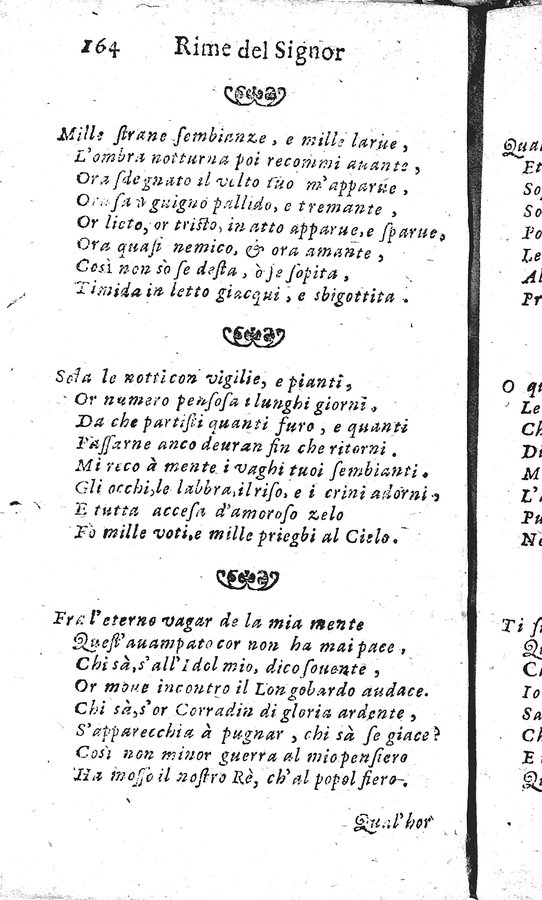 164 Rime del Signor
Mille ſtrane ſembianze, e mille larue,
L'ombra notturna poi recommi auante,
Ora ſdegnato il volto tuo m'apparue,
Ora ſanguigno pallido, e tremante,
Or lieto, or triſto, in atto apparue, e ſparue,
Ora quaſi nemico, & ora amante,
Così non sò ſe deſta, ò ſe ſopita,
Timida in letto giacqui, e sbigottita.
Sola le notti con vigilie, e pianti,
Or numero penſoſa i lunghi giorni,
Da che partiſti quanti furo, e quanti
Paſſarne anco deuran fin che ritorni.
Mi reco à mente i vaghi tuoi ſembianti.
Gli occhi, le labbra, il riſo, e i crini adorni,
E tutta acceſa d'amoroſo zelo
Fò mille voti, e mille prieghi al Cielo.
Fra l'eterno vagar de la mia mente
Queſt'auampato cor non ha mai pace,
Chi sà, s'all'Idol mio, dico ſouente,
Or moue incontro il Longobardo audace.
Chi sà, s'or Corradin di gloria ardente,
S'apparecchia à pugnar, chi sà ſe giace?
Così non minor guerra al mio penſiero
Ha moſſo il noſtro Rè, ch'al popol fiero.
Qual'hor
Qual
Et
So
So
Po
Le
Al
Pr
O qu
Le
Ch
Di
M
L'
Pu
Ne
Ti
Qu
Ch
Io
Sa
Ch
E
Qu